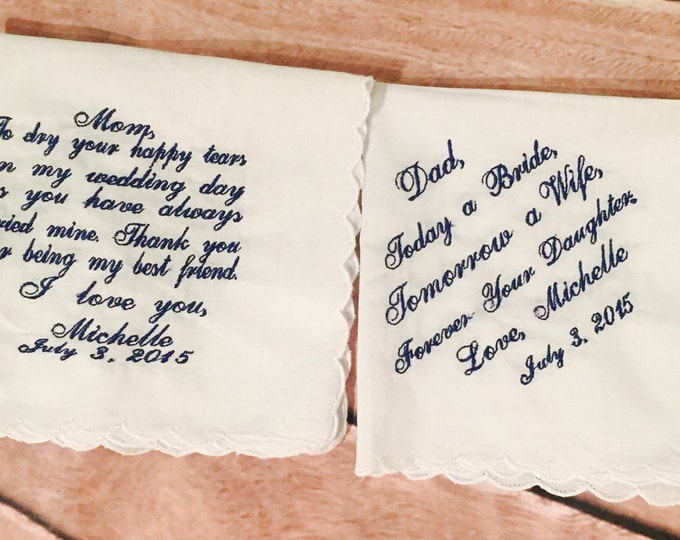 Mom,
To dry your happy tears,
my wedding day
you have always
mine. Thank you
being my best friend.
I love you,
Michelle
July 3, 2015
Dad,
Today a Bride,
Tomorrow a Wife,
Forever Your Daughter,
Love, Michelle
July 3, 2015